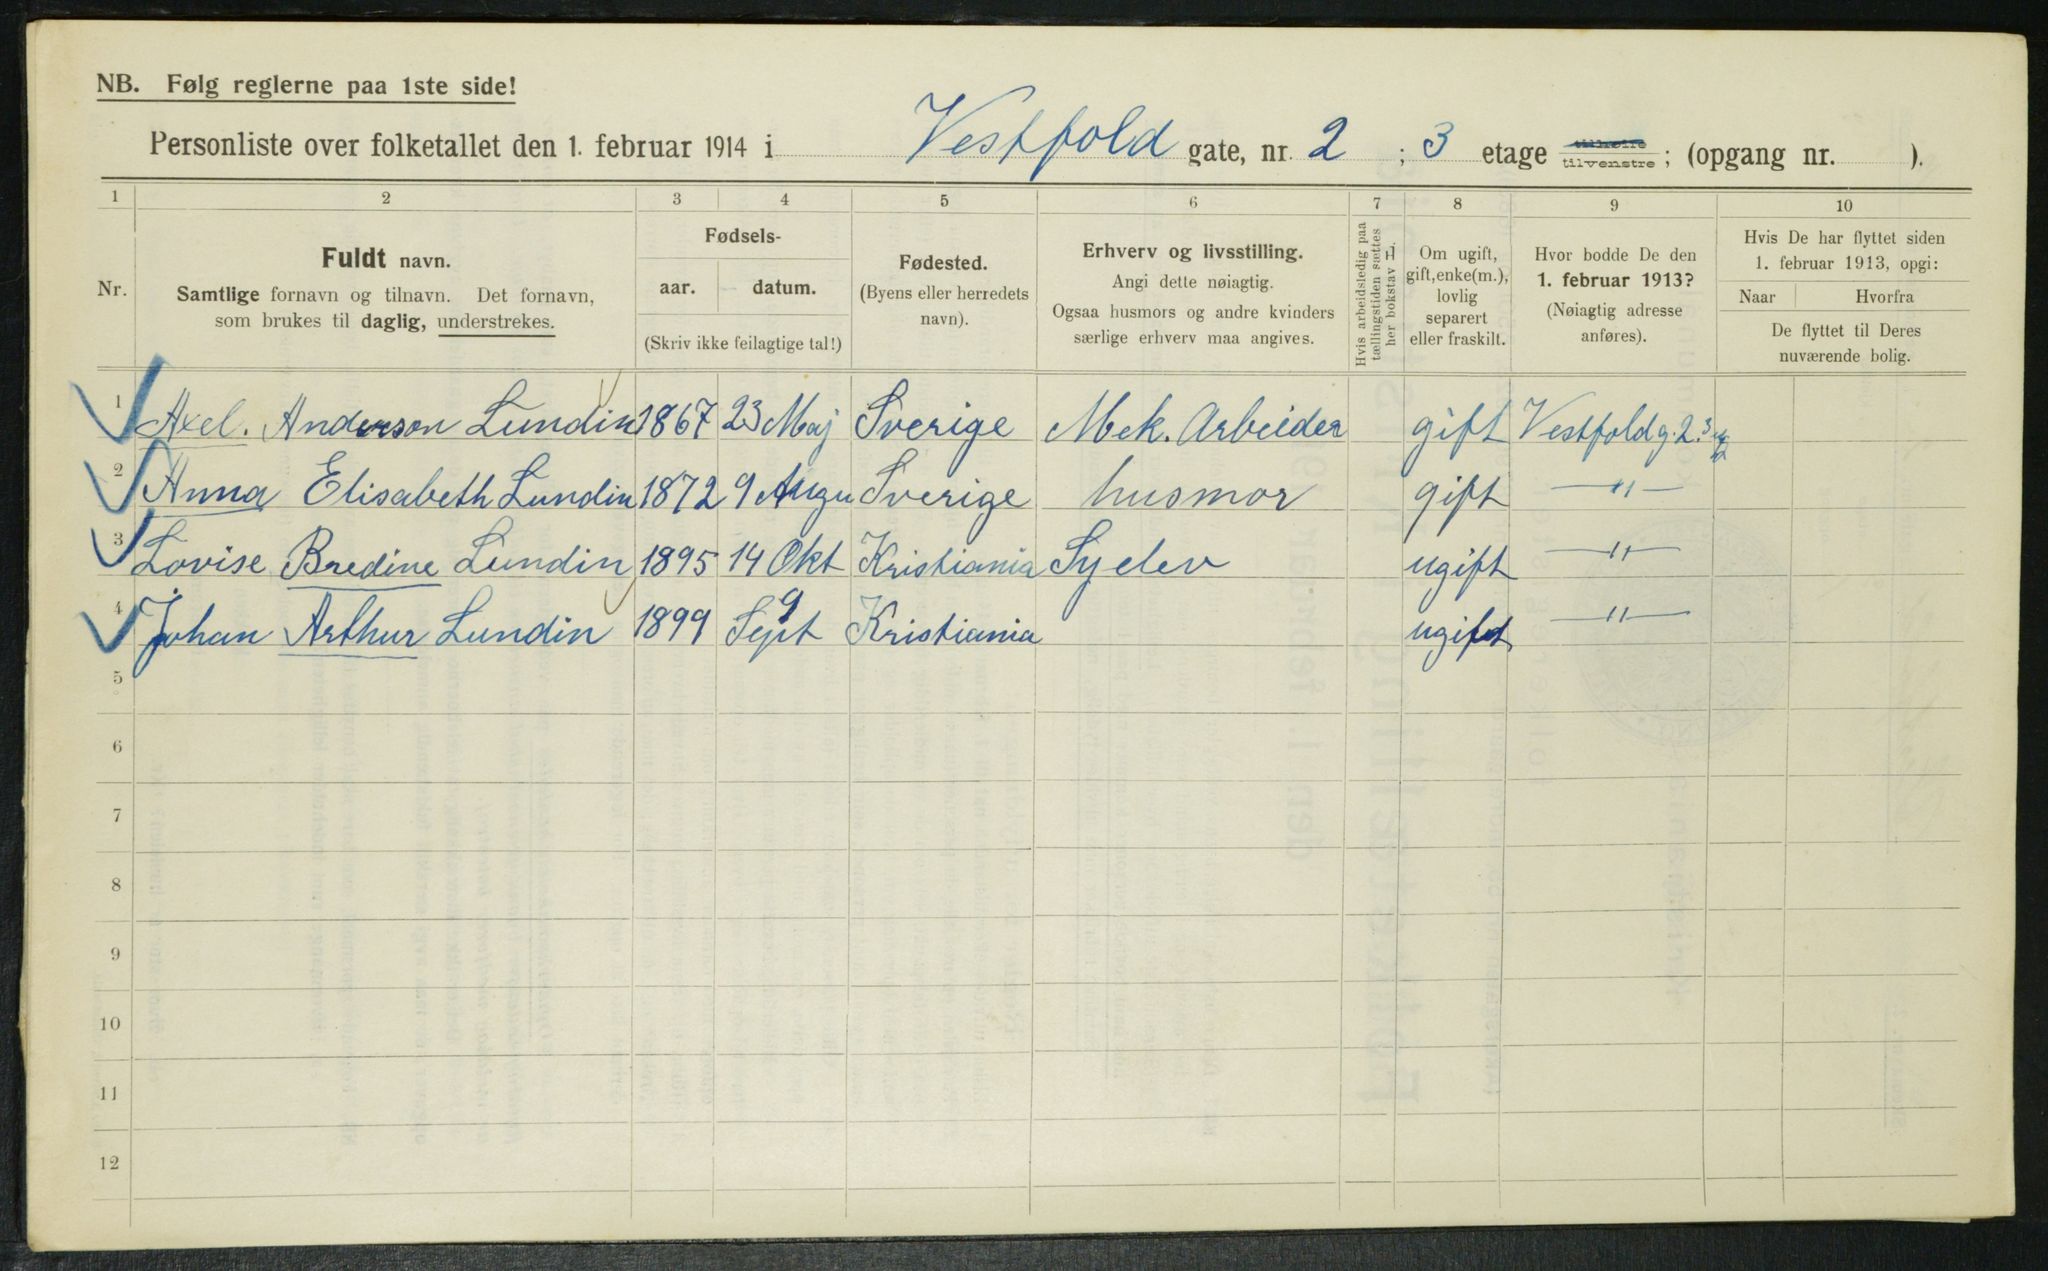 NB. Følg reglerne paa 1ste side!
Personliste over folketallet den 1. februar 1914 i Vestfold gate, nr. 2 ; 3 etage tilhøire tilvenstre ; (opgang nr. ).
1 2 3 4 5 6 7 8 9 10
Nr.
Fuldt navn.
Samtlige fornavn og tilnavn. Det fornavn,
som brukes til daglig, understrekes.
Fødsels-
aar. datum.
(Skriv ikke feilagtige tal!)
Fødested.
(Byens eller herredets
navn).
Erhverv og livsstilling.
Angi dette nøiagtig.
Ogsaa husmors og andre kvinders
særlige erhverv maa angives.
Hvis arbeidsledig paa
tællingstiden sættes
her bokstav L
Om ugift,
gift, enke(m.),
lovlig
separert
eller fraskilt.
Hvor bodde De den
1. februar 1913?
(Nøiagtig adresse
anføres).
Hvis De har flyttet siden
1. februar 1913, opgi:
Naar Hvorfra
De flyttet til Deres
nuværende bolig.
1 Axel. Anderson Lundin 1867 23 Maj Sverige Mek. Arbeider gift Vestfold g. 2. 3
2 Anna Elisabeth Lundin 1872 9 Augu Sverige husmor gift —"—
3 Lovise Bredine Lundin 1895 14 Okt Kristiania Syelev ugift —"—
4 Johan Arthur Lundin 1899 9 Sept Kristiania ugift —"—
5
6
7
8
9
10
11
12